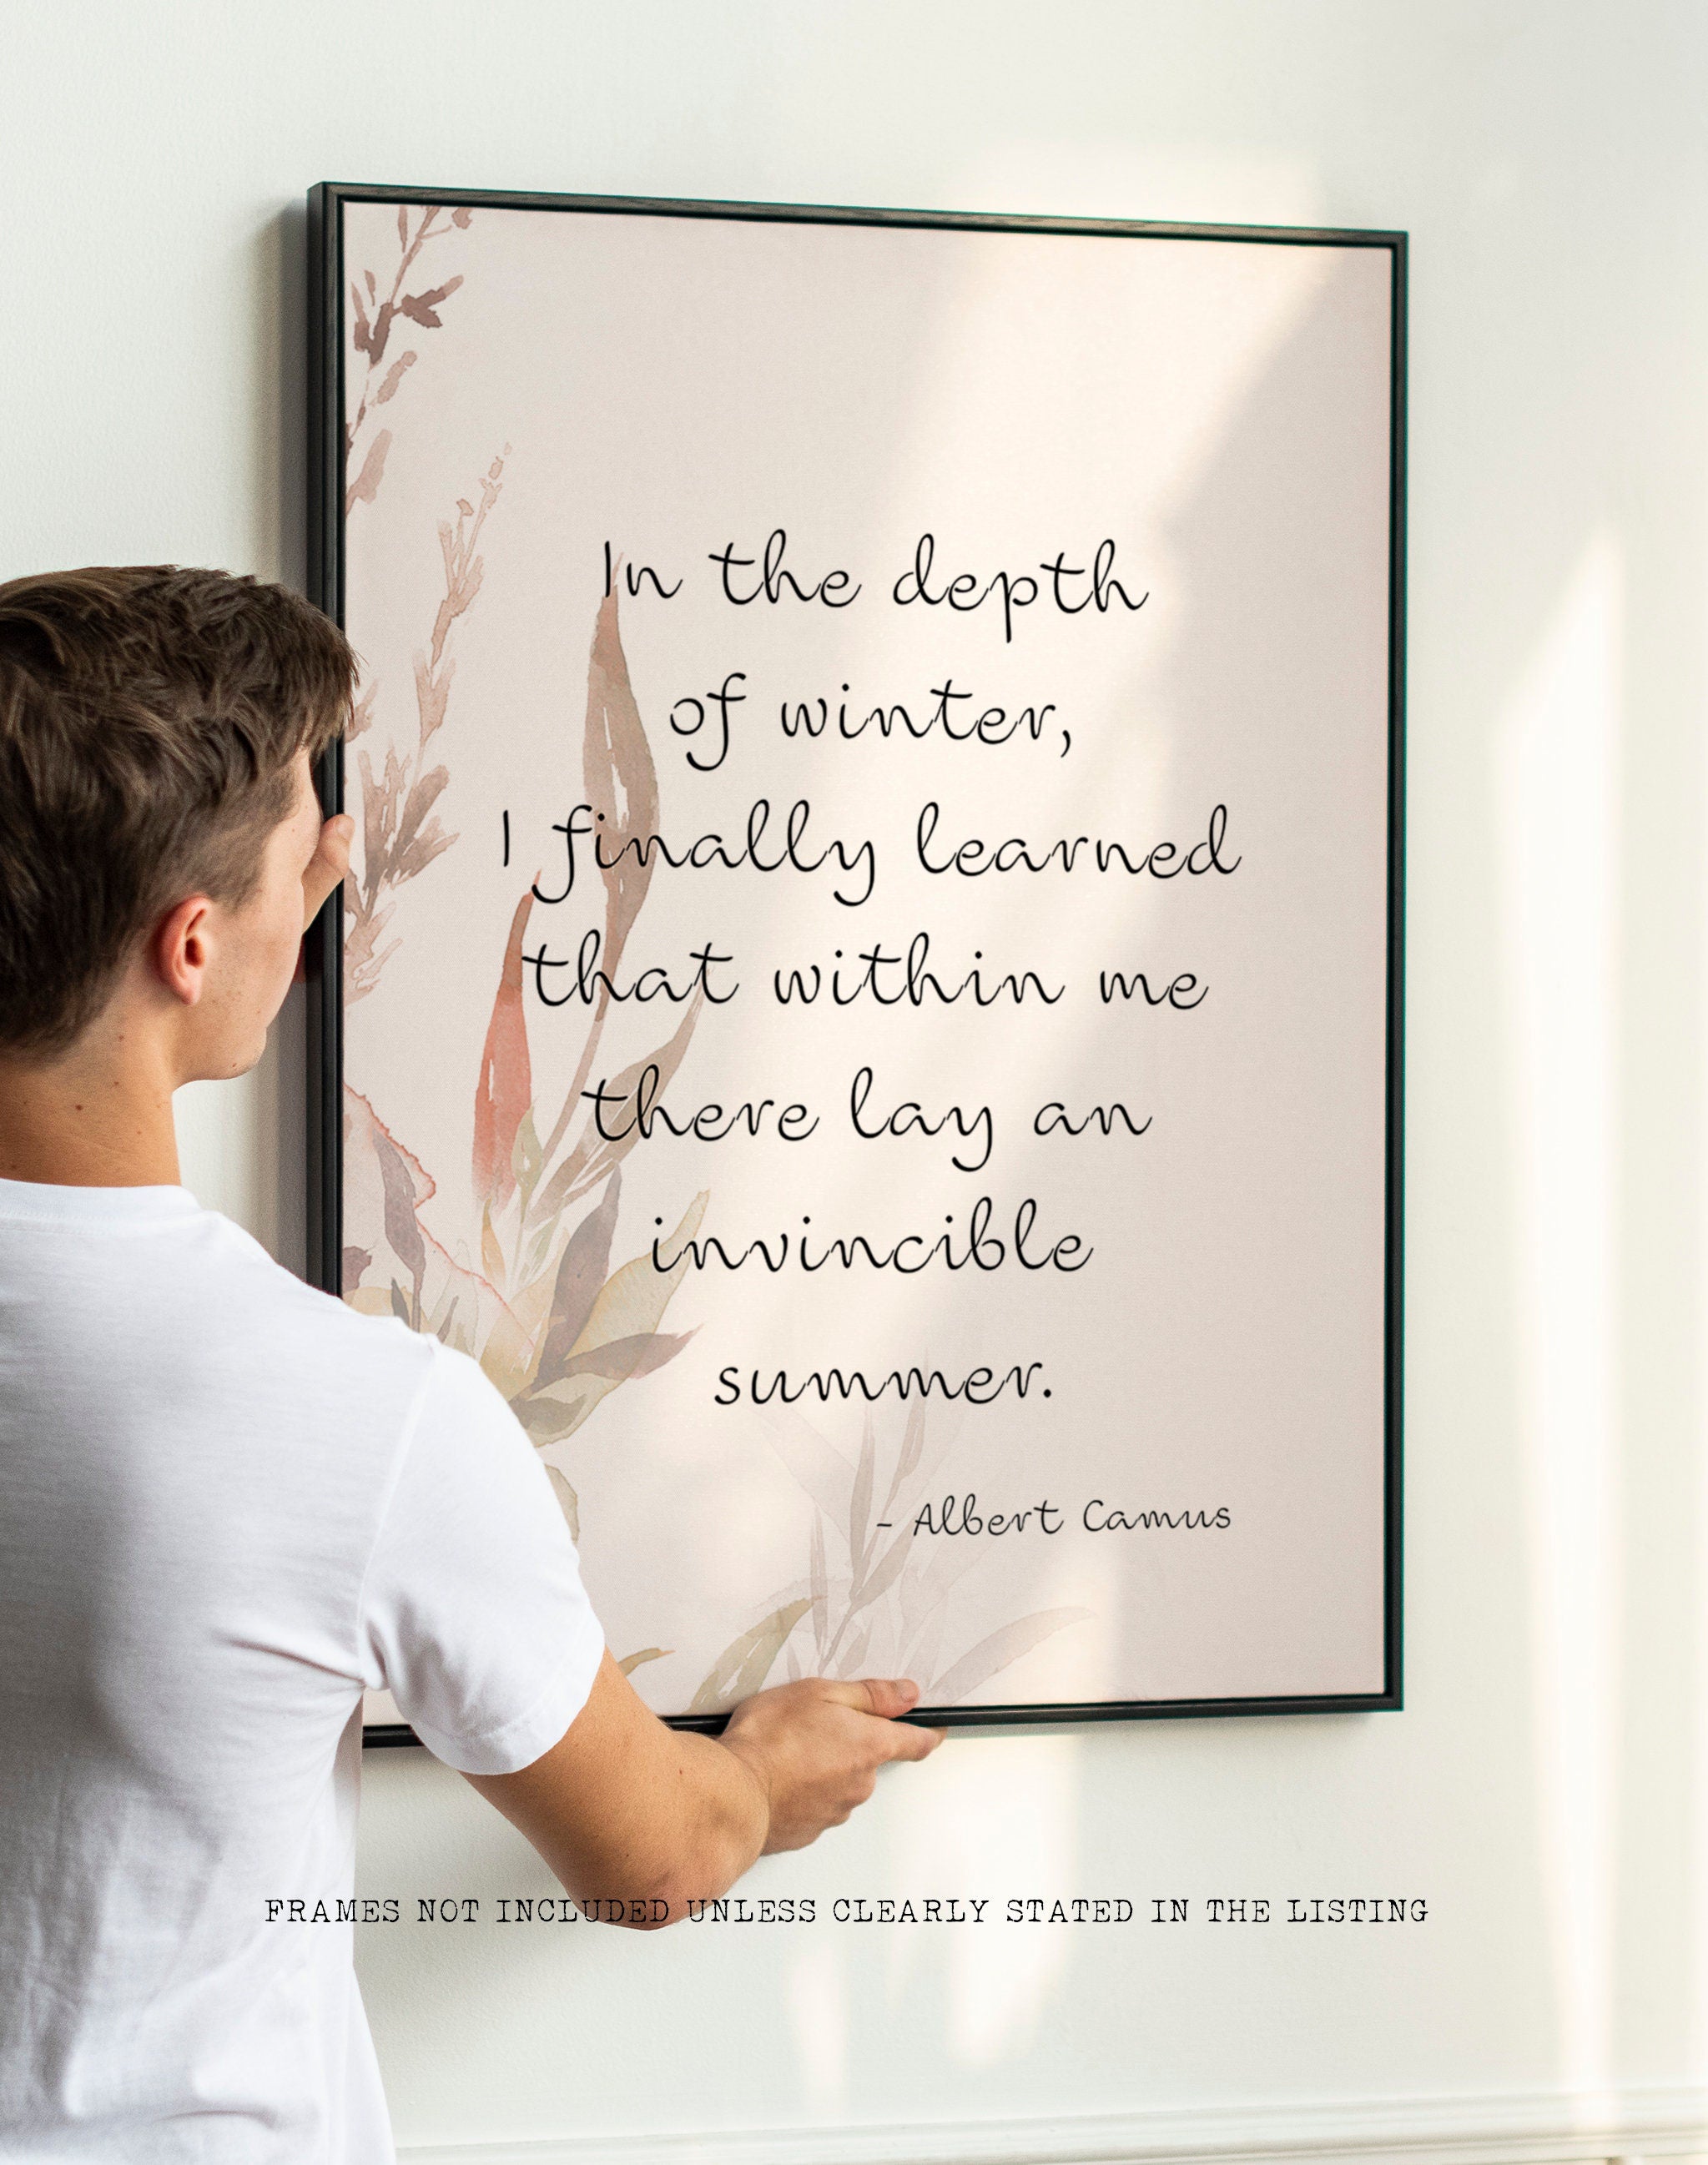 In the depth
of winter,
I finally learned
that within me
there lay an
invincible
summer.
- Albert Camus
FRAMES NOT INCLUDED UNLESS CLEARLY STATED IN THE LISTING